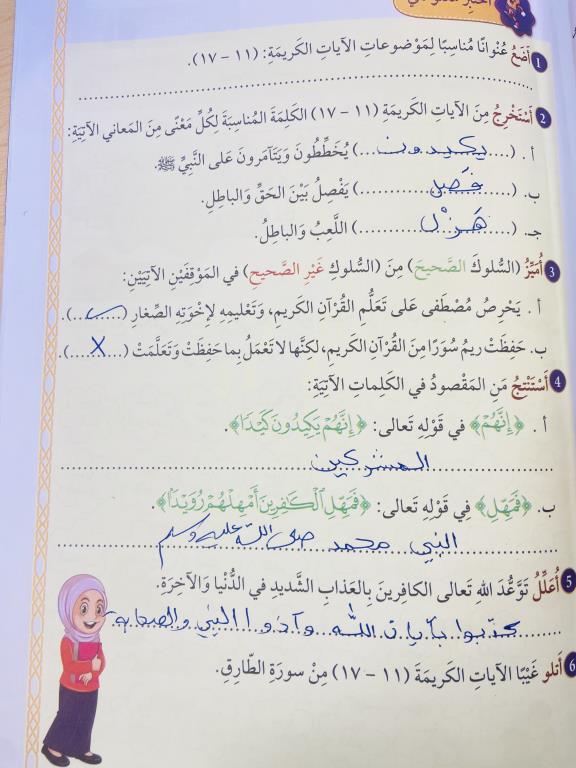 أختبر معلوماتي
1 أَضَعُ عُنْوانًا مُناسِبًا لِمَوْضوعاتِ الآياتِ الكَريمَةِ: (١١ - ١٧).
2 أَسْتَخْرِجُ مِنَ الآياتِ الكَريمَةِ (١١ - ١٧) الكَلِمَةَ المُناسَبَةَ لِكُلِّ مَعْنًى مِنَ المَعاني الآتِيَةِ:
أ . (يكيدون) يُخَطِّطُونَ وَيَتَآمَرونَ عَلى النَّبِيِّ ﷺ.
ب. (فَصل) يَفْصِلُ بَيْنَ الحَقِّ وَالباطِلِ.
جـ. (هَزْل) اللَّعِبُ وَالباطِلُ.
3 أُمَيِّزُ (السُّلوكَ الصَّحيحَ) مِنَ (السُّلوكِ غَيْرِ الصَّحيحِ) في المَوْقِفَيْنِ الآتِيَيْنِ:
أ . يَحْرِصُ مُصْطَفى عَلى تَعَلُّمِ القُرْآنِ الكَريمِ، وَتَعْليمِهِ لِإِخْوَتِهِ الصِّغارِ (✓).
ب. حَفِظَتْ ريمُ سُوَرًا مِنَ القُرْآنِ الكَريمِ، لكِنَّها لا تَعْمَلُ بِما حَفِظَتْ وَتَعَلَّمَتْ (X).
4 أَسْتَنْتِجُ مَنِ المَقْصودُ في الكَلِماتِ الآتِيَةِ:
أ . ﴿إِنَّهُمْ﴾ في قَوْلِهِ تَعالى: ﴿إِنَّهُمْ يَكِيدُونَ كَيْدًا﴾.
المشركين
ب. ﴿فَمَهِّلِ﴾ في قَوْلِهِ تَعالى: ﴿فَمَهِّلِ ٱلْكَافِرِينَ أَمْهِلْهُمْ رُوَيْدًا﴾.
النبي محمد صلى الله عليه وسلم
5 أُعَلِّلُ تَوَعُّدَ الله تَعالى الكافِرينَ بِالعَذابِ الشَّديدِ في الدُّنْيا وَالآخِرَةِ.
كذبوا بآيات الله وآذوا النبي والصحابة
6 أَتلو غَيْبًا الآياتِ الكَريمَةَ (١١ - ١٧) مِنْ سورَةِ الطّارِقِ.